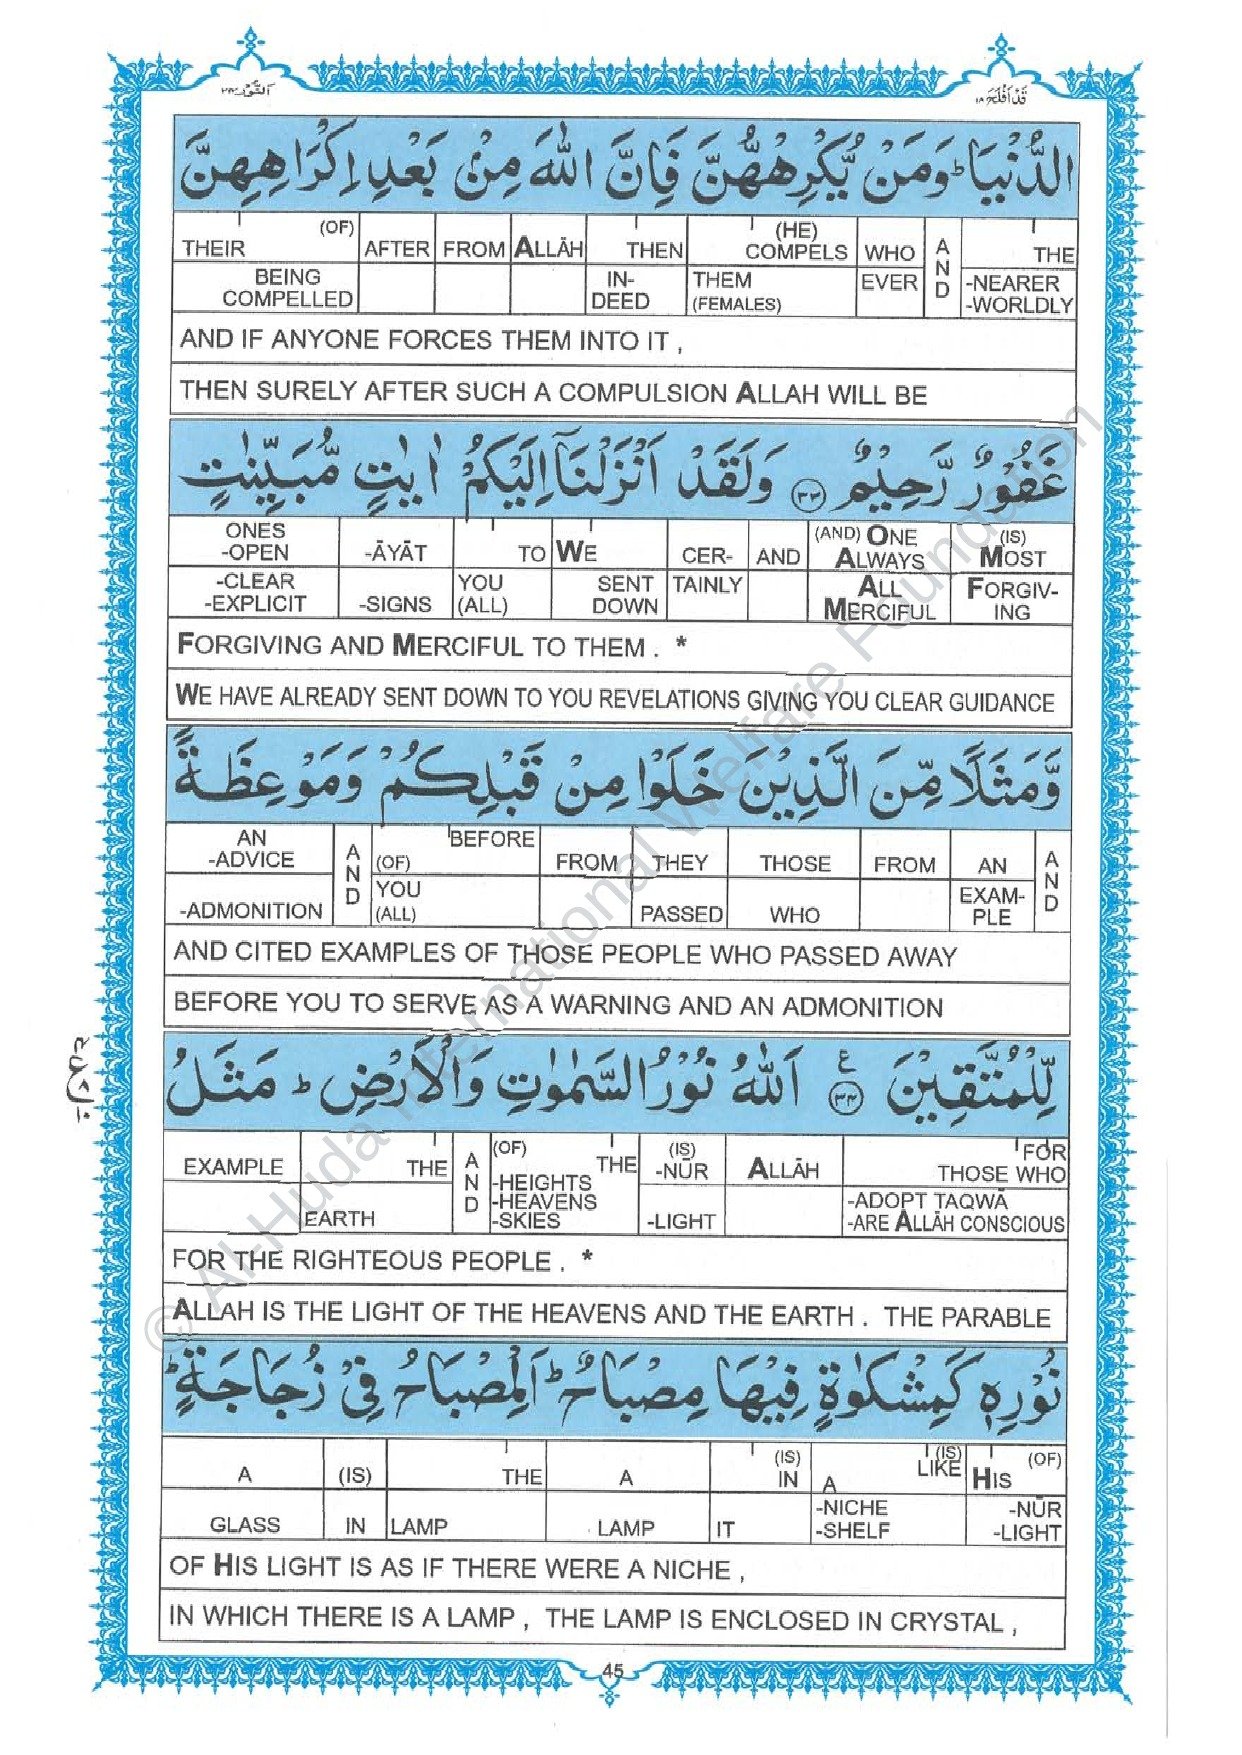 النور ٢٤
قد افلح ١٨
الدُّنْيَا ؕ وَمَنْ يُّكْرِهْهُّنَّ فَاِنَّ اللّٰهَ مِنْۢ بَعْدِ اِكْرَاهِهِنَّ
THEIR (OF) AFTER FROM ALLĀH THEN (HE) COMPELS WHO AND THE
BEING COMPELLED IN-DEED THEM (FEMALES) EVER -NEARER -WORLDLY
AND IF ANYONE FORCES THEM INTO IT ,
THEN SURELY AFTER SUCH A COMPULSION ALLAH WILL BE
غَفُوْرٌ رَّحِيْمٌ ﴿۳۳﴾ وَلَقَدْ اَنْزَلْنَاۤ اِلَيْكُمْ اٰيٰتٍ مُّبَيِّنٰتٍ
ONES -OPEN -ĀYĀT TO WE CER- AND (AND) ONE ALWAYS (IS) MOST
-CLEAR -EXPLICIT -SIGNS YOU (ALL) SENT DOWN TAINLY ALL MERCIFUL FORGIV-ING
FORGIVING AND MERCIFUL TO THEM . *
WE HAVE ALREADY SENT DOWN TO YOU REVELATIONS GIVING YOU CLEAR GUIDANCE
وَّمَثَلًا مِّنَ الَّذِيْنَ خَلَوْا مِنْ قَبْلِكُمْ وَمَوْعِظَةً
AN -ADVICE AND BEFORE (OF) FROM THEY THOSE FROM AN AND
-ADMONITION YOU (ALL) PASSED WHO EXAM-PLE
AND CITED EXAMPLES OF THOSE PEOPLE WHO PASSED AWAY
BEFORE YOU TO SERVE AS A WARNING AND AN ADMONITION
لِّلْمُتَّقِيْنَ ﴿۳۴﴾ ع اَللّٰهُ نُوْرُ السَّمٰوٰتِ وَالْاَرْضِ ؕ مَثَلُ
EXAMPLE THE AND (OF) THE (IS) -NŪR ALLĀH FOR THOSE WHO
EARTH -HEIGHTS -HEAVENS -SKIES -LIGHT -ADOPT TAQWĀ -ARE ALLĀH CONSCIOUS
FOR THE RIGHTEOUS PEOPLE . *
ALLAH IS THE LIGHT OF THE HEAVENS AND THE EARTH . THE PARABLE
نُوْرِهٖ كَمِشْكٰوةٍ فِيْهَا مِصْبَاحٌ ؕ اَلْمِصْبَاحُ فِيْ زُجَاجَةٍ ؕ
A (IS) THE A (IS) IN A LIKE (IS) HIS (OF)
GLASS IN LAMP LAMP IT -NICHE -SHELF -NŪR -LIGHT
OF HIS LIGHT IS AS IF THERE WERE A NICHE ,
IN WHICH THERE IS A LAMP , THE LAMP IS ENCLOSED IN CRYSTAL ,
45
© Al-Huda International Welfare Foundation